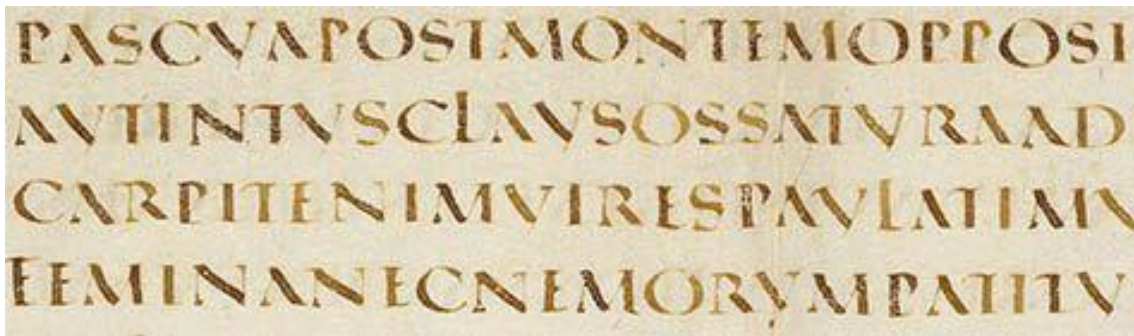 PASCVAPOSTMONTEMOPPOSI
AVTINTVSCLAVSOSSATVRAAD
CARPITENIMVIRESPAVLATIMV
FEMINANECNEMORVMPATITV